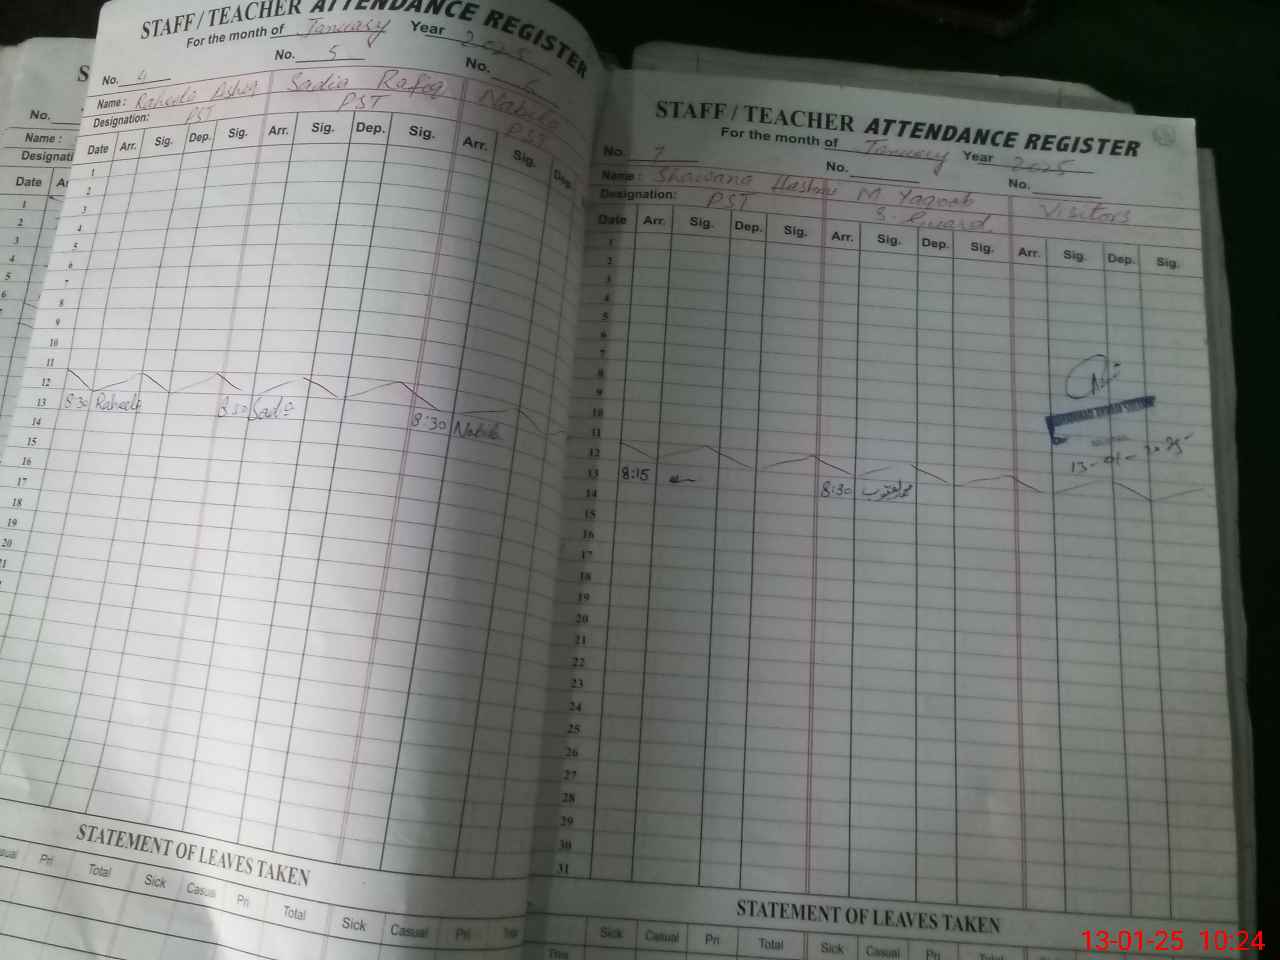 STAFF / TEACHER ATTENDANCE REGISTER
For the month of January Year 2025
No. 4 No. 5 No. 6
Name : Raheela Sadia Rafiq
Designation: PST PST PST
Date Arr. Sig. Dep. Sig. Arr. Sig. Dep. Sig. Arr. Sig. Dep.
1
2
3
4
5
6
7
8
9
10
11
12
13 8:30 Raheela 8:30 Sadia 8:30
14
15
16
17
18
19
20
21
STATEMENT OF LEAVES TAKEN
Pri Total Sick Casual Pri Total Sick Casual Pri Total
No.
Name :
Date
1
2
3
4
5
6
STAFF / TEACHER ATTENDANCE REGISTER
For the month of January Year 2025
No. 7 No. No.
Name : Hashmi M Yaqoob Visitors
Designation: PST
Date Arr. Sig. Dep. Sig. Arr. Sig. Dep. Sig. Arr. Sig. Dep. Sig.
1
2
3
4
5
6
7
8
9
10
11
12
13 8:15 8:30 محمد یعقوب
14
15
16
17
18
19
20
21
22
23
24
25
26
27
28
29
30
31
13-01-2025
STATEMENT OF LEAVES TAKEN
Sick Casual Pri Total Sick Casual Pri Total Sick
13-01-25 10:24